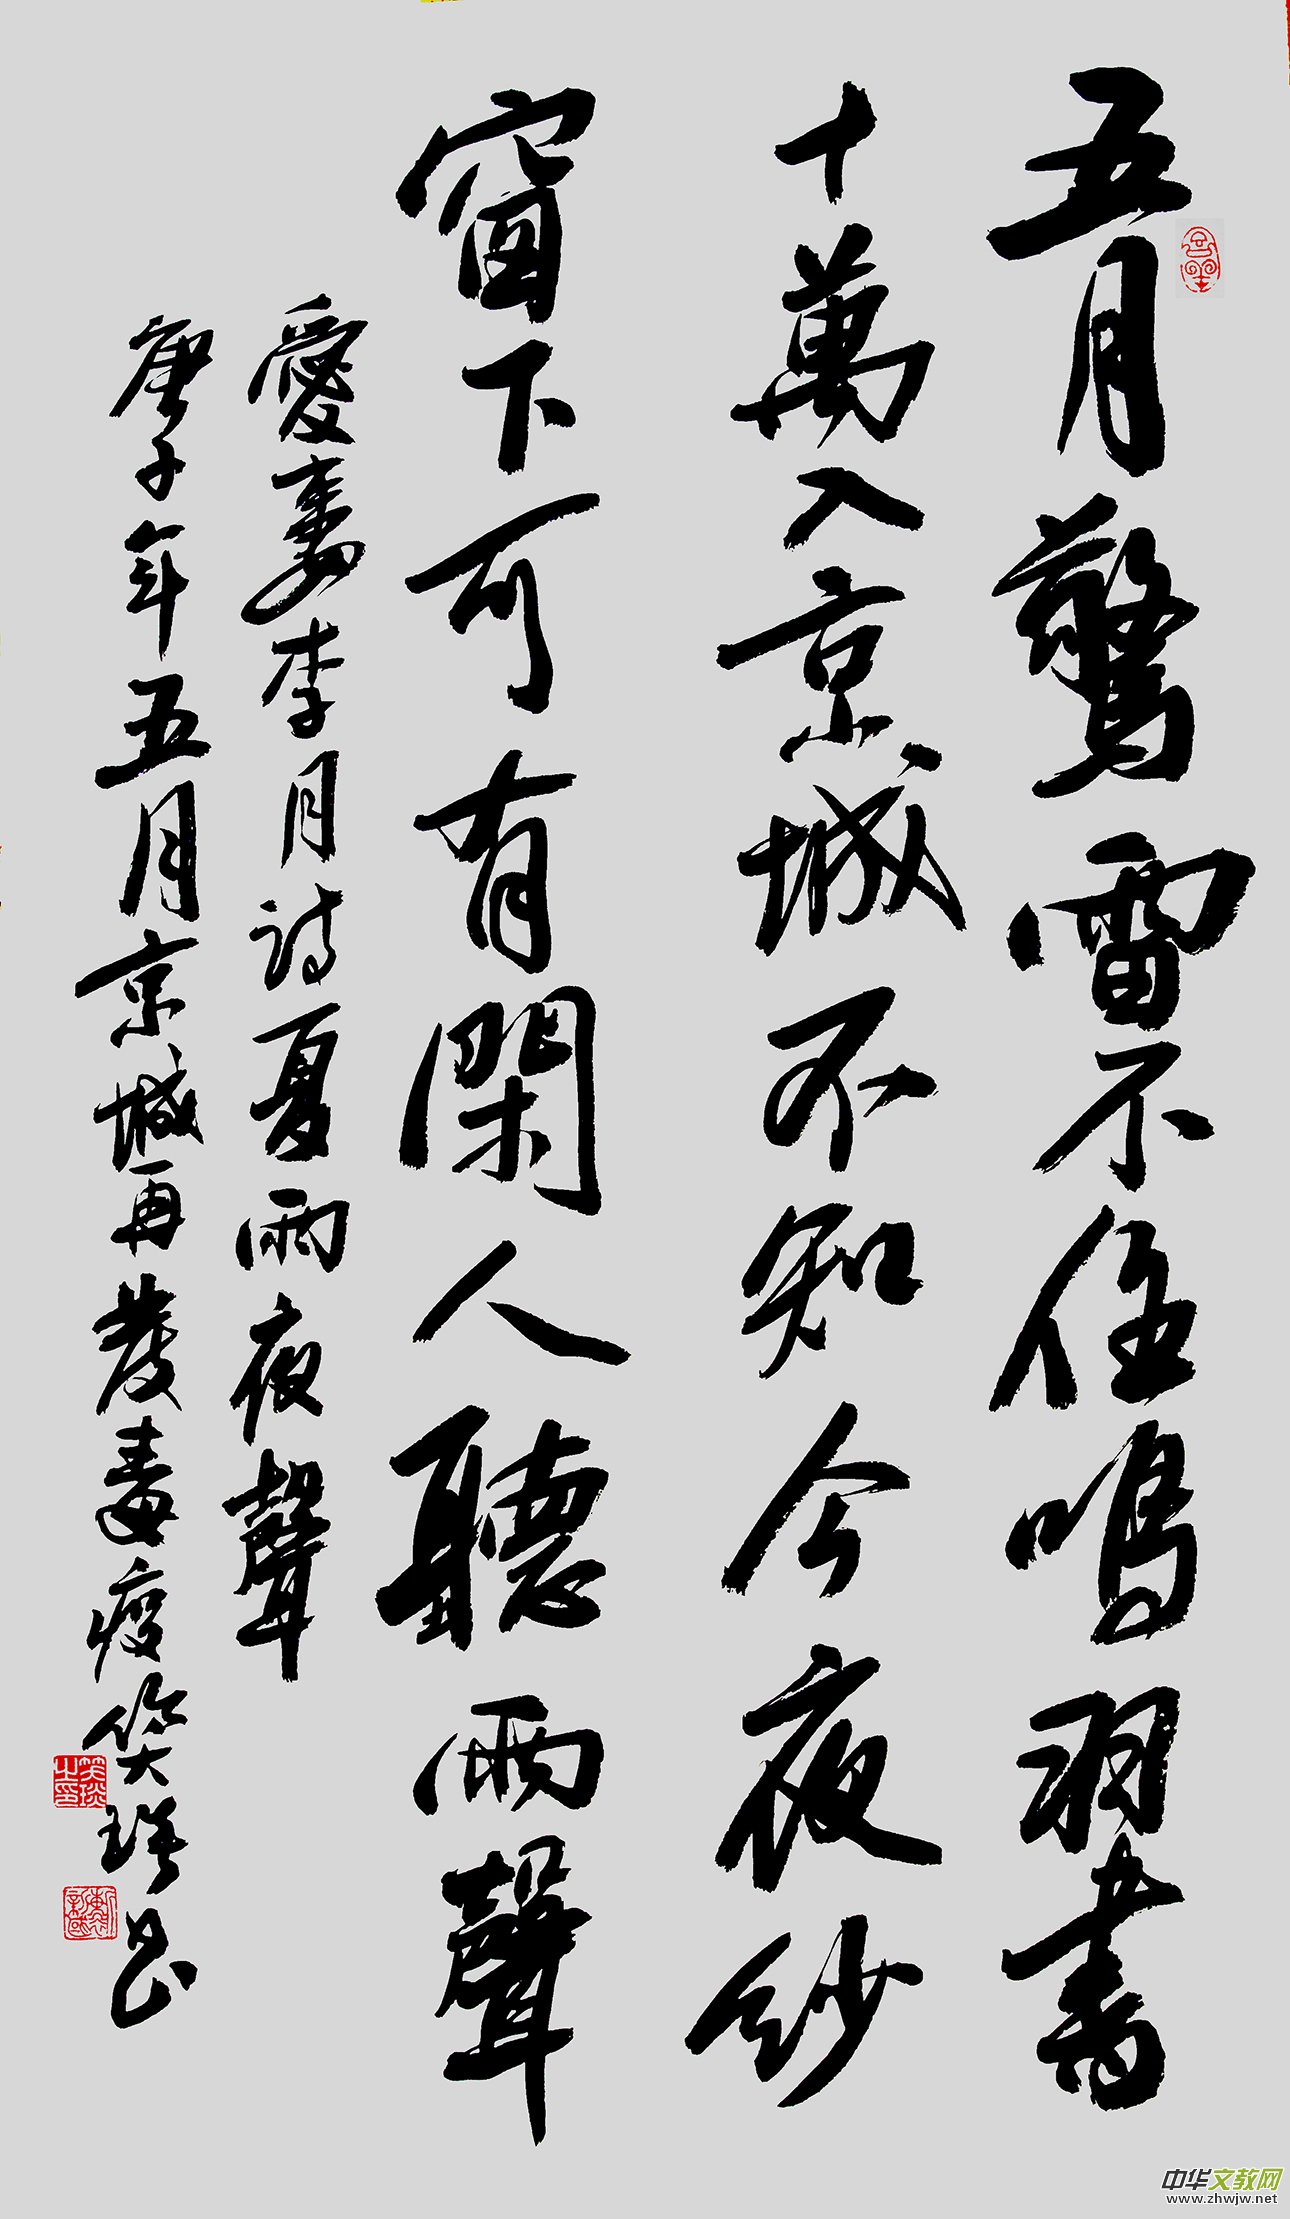 五月驚雷不住鳴羽書
十萬入京城不知今夜紗
窗下可有閑人聽雨聲
愛妻李月詩夏雨夜聲
庚子年五月京城再發毒疫笑琰書
中华文教网
www.zhwjw.net